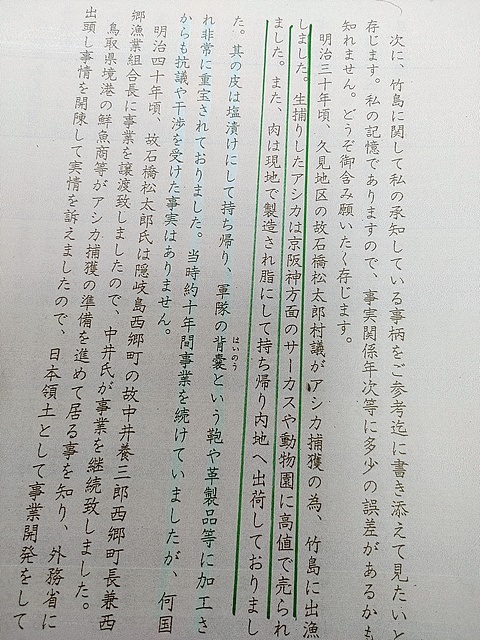 次に、竹島に関して私の承知している事柄をご参考迄に書き添えて見たいと
存じます。私の記憶でありますので、事実関係年次等に多少の誤差があるかも
知れません。どうぞ御含み願いたく存じます。
明治三十年頃、久見地区の故石橋松太郎村議がアシカ捕獲の為、竹島に出漁
しました。生捕りしたアシカは京阪神方面のサーカスや動物園に高値で売られ
ました。また、肉は現地で製造され脂にして持ち帰り内地へ出荷しておりまし
た。其の皮は塩漬けにして持ち帰り、軍隊の背嚢という鞄や革製品等に加工さ
はいのう
れ非常に重宝されておりました。当時約十年間事業を続けていましたが、何国
からも抗議や干渉を受けた事実はありません。
明治四十年頃、故石橋松太郎氏は隠岐島西郷町の故中井養三郎西郷町長兼西
郷漁業組合長に事業を譲渡致しましたので、中井氏が事業を継続致しました。
鳥取県境港の鮮魚商等がアシカ捕獲の準備を進めて居る事を知り、外務省に
出頭し事情を開陳して実情を訴えましたので、日本領土として事業開発をして